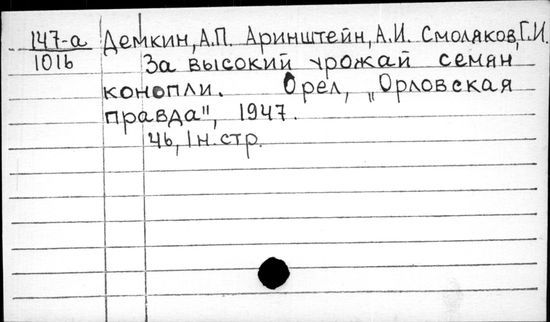 147-а Демкин,А.П. Аринштейн,А.И. Смоляков,Г.И.
1016 За высокий урожай семян
конопли. Орел, „Орловская
правда", 1947.
46, 1н.стр.